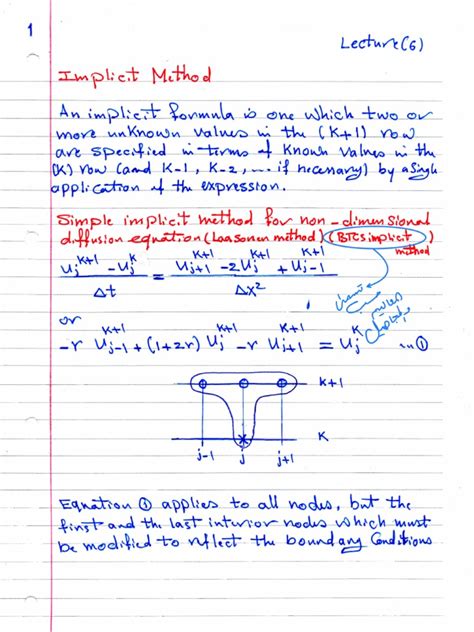 1
Lecture(6)
Implicit Method
An implicit formula is one which two or
more unknown values in the (K+1) row
are specified in terms of known values in the
(K) row (and K-1, K-2, ... if necenary) by a Single
application of the expression.
Simple implicit method for non-dimensional
diffusion equation (Laasonen method) (BTCS implicit method)
(U_j^{K+1} - U_j^K) / Δt = (U_{j+1}^{K+1} - 2U_j^{K+1} + U_{j-1}^{K+1}) / Δx²
or
-r U_{j-1}^{K+1} + (1+2r) U_j^{K+1} - r U_{j+1}^{K+1} = U_j^K ...①
K+1
K
j-1 j j+1
Equation ① applies to all nodes, but the
first and the last interior nodes which must
be modified to reflect the boundary Conditions